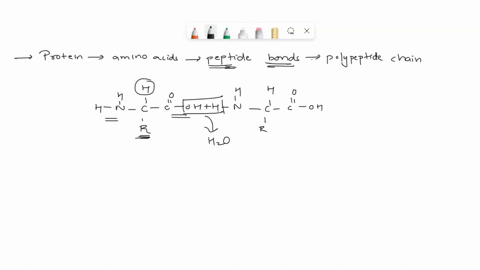 → Protein → amino acids → peptide bonds → polypeptide chain
H H H
H - N - C - C - OH + H - N - C - C - OH
O O
R R
H₂O